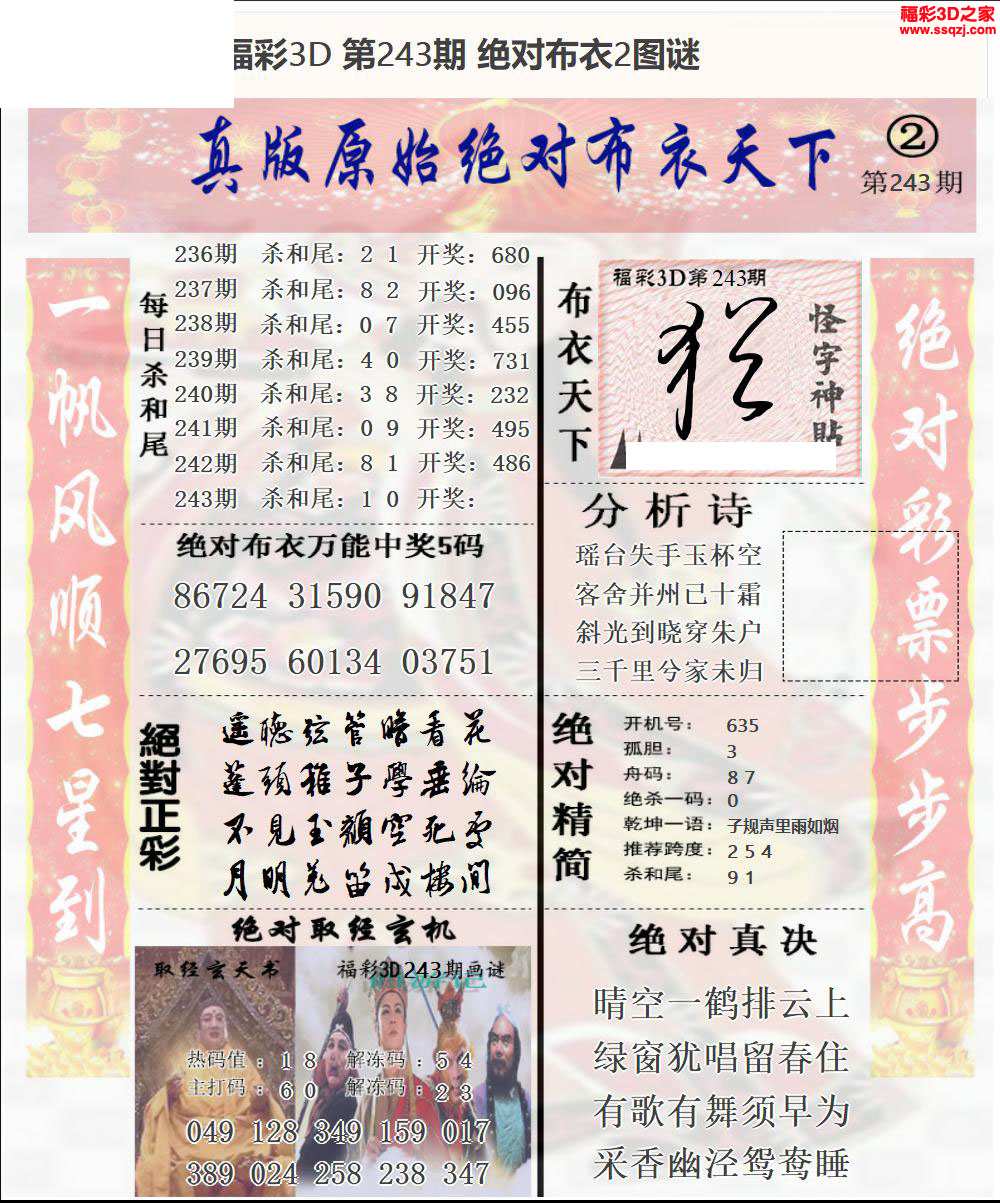 福彩3D之家
www.ssqzj.com
福彩3D 第243期 绝对布衣2图谜
真版原始绝对布衣天下
②
第243期
一帆风顺七星到
每日杀和尾
236期 杀和尾：2 1 开奖：680
237期 杀和尾：8 2 开奖：096
238期 杀和尾：0 7 开奖：455
239期 杀和尾：4 0 开奖：731
240期 杀和尾：3 8 开奖：232
241期 杀和尾：0 9 开奖：495
242期 杀和尾：8 1 开奖：486
243期 杀和尾：1 0 开奖：
绝对布衣万能中奖5码
86724 31590 91847
27695 60134 03751
絕對正彩
遥聴弦管暗看花
蓬頭稚子學垂綸
不見玉顏空死處
月明羌笛戍楼间
绝对取经玄机
取经玄天书
福彩3D243期画谜
热码值：1 8 解冻码：5 4
主打码：6 0 解冻码：2 3
049 128 349 159 017
389 024 258 238 347
布衣天下
福彩3D第243期
怪字神贴
分析诗
瑶台失手玉杯空
客舍并州已十霜
斜光到晓穿朱户
三千里兮家未归
绝对精简
开机号： 635
孤胆： 3
舟码： 8 7
绝杀一码：0
乾坤一语：子规声里雨如烟
推荐跨度：2 5 4
杀和尾： 9 1
绝对真决
晴空一鹤排云上
绿窗犹唱留春住
有歌有舞须早为
采香幽泾鸳鸯睡
绝对彩票步步高